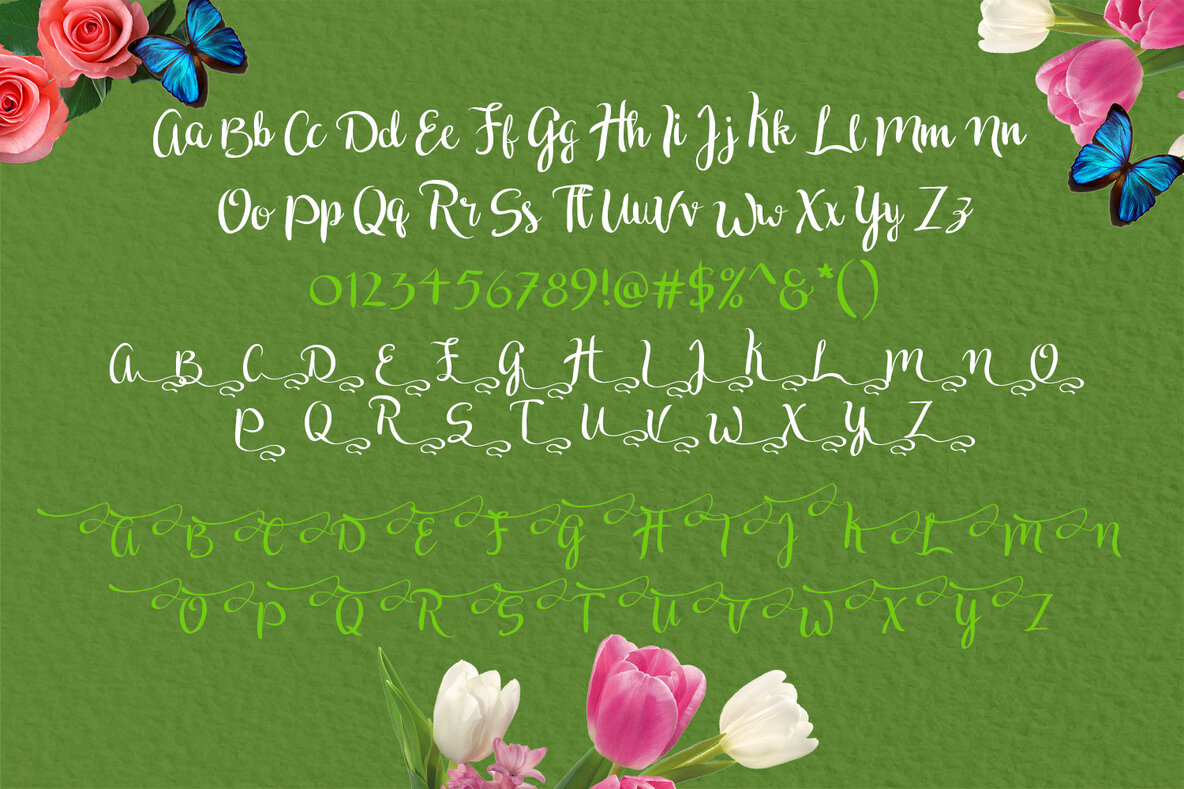 Aa Bb Cc Dd Ee Ff Gg Hh Ii Jj Kk Ll Mm Nn
Oo Pp Qq Rr Ss Tt Uu Vv Ww Xx Yy Zz
0123456789!@#$%^&*()
A B C D E F G H I J K L M N O
P Q R S T U V W X Y Z
A B C D E F G H I J K L M N
O P Q R S T U V W X Y Z